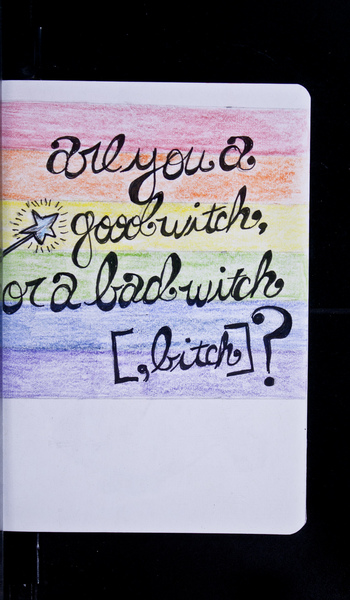 are you a
good witch,
or a bad witch
[, bitch]?